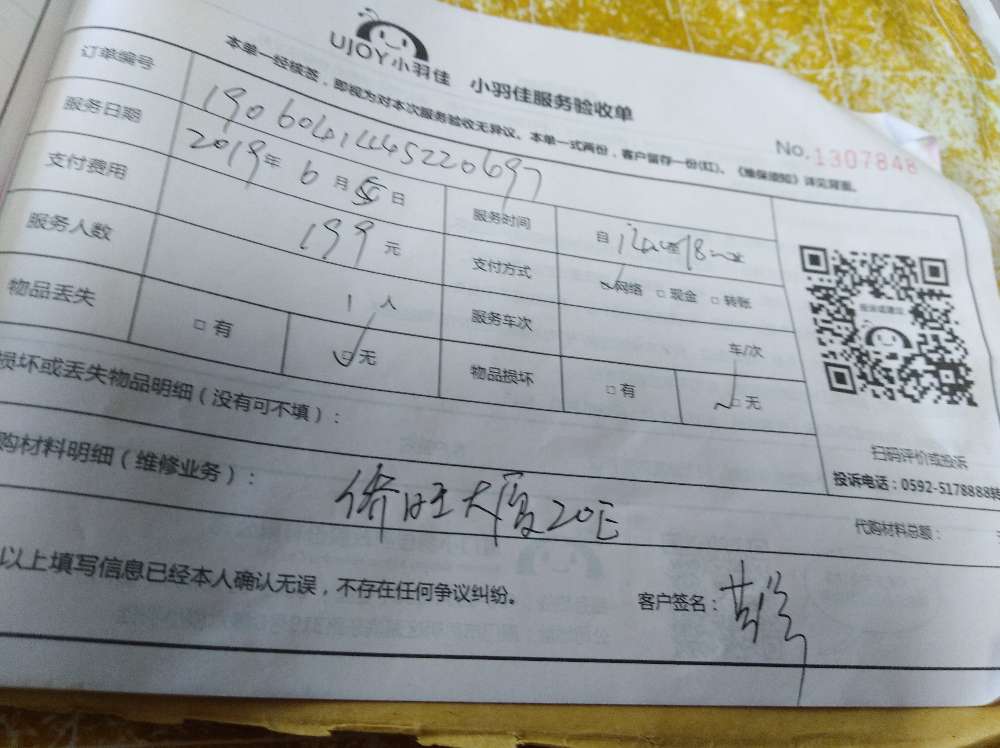 UJOY小羽佳 小羽佳服务验收单
No.1307848
本单一经核签，即视为对本次服务验收无异议。本单一式两份，客户留存一份(红)。《维保须知》详见背面。
订单编号 1906041445220697
服务日期 2019年6月5日 服务时间 自 至
支付费用 199元 支付方式 网络 □现金 □转账
服务人数 1人 服务车次 车/次
物品丢失 □有 □无 物品损坏 □有 □无
损坏或丢失物品明细（没有可不填）：
购材料明细（维修业务）：
侨旺大厦20E
代购材料总额：
以上填写信息已经本人确认无误，不存在任何争议纠纷。 客户签名：
扫码评价或投诉
投诉电话：0592-5178888转